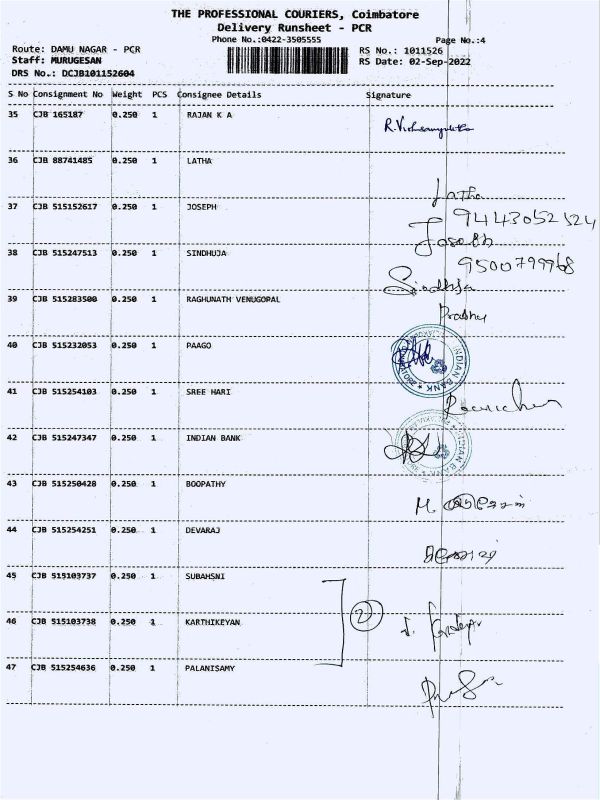 THE PROFESSIONAL COURIERS, Coimbatore
Delivery Runsheet - PCR
Phone No.:0422-3505555
Page No.:4
Route: DAMU NAGAR - PCR
RS No.: 1011526
Staff: MURUGESAN
RS Date: 02-Sep-2022
DRS No.: DCJB101152604
S No Consignment No Weight PCS Consignee Details Signature
35 CJB 165187 0.250 1 RAJAN K A
36 CJB 88741485 0.250 1 LATHA
Latha
37 CJB 515152617 0.250 1 JOSEPH
9443052524
Joseph
38 CJB 515247513 0.250 1 SINDHUJA
9500799968
Sindhuja
39 CJB 515283500 0.250 1 RAGHUNATH VENUGOPAL
Prabhu
40 CJB 515232053 0.250 1 PAAGO
INDIAN BANK
41 CJB 515254103 0.250 1 SREE HARI
42 CJB 515247347 0.250 1 INDIAN BANK
INDIAN BANK
43 CJB 515250428 0.250 1 BOOPATHY
44 CJB 515254251 0.250 1 DEVARAJ
45 CJB 515103737 0.250 1 SUBAHSNI
2
46 CJB 515103738 0.250 1 KARTHIKEYAN
47 CJB 515254636 0.250 1 PALANISAMY